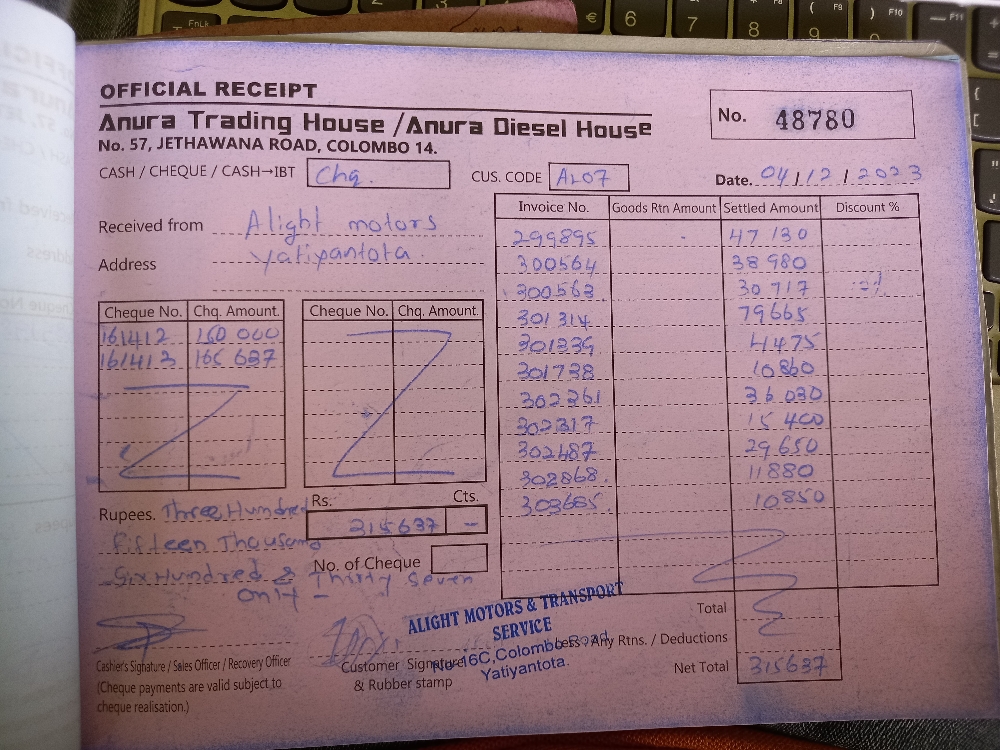 OFFICIAL RECEIPT
Anura Trading House / Anura Diesel House
No. 57, JETHAWANA ROAD, COLOMBO 14.
No. 48780
CASH / CHEQUE / CASH→IBT Chq.
CUS. CODE AL07
Date. 04 / 12 / 2023
Received from Alight motors
Address Yatiyantota.
Cheque No. Chq. Amount.
161412 150 000
161413 165 637
Cheque No. Chq. Amount.
Invoice No. Goods Rtn Amount Settled Amount Discount %
299895 - 47 130
300564 38 980
300563 30 717
301314 79665
301339 4475
301738 10860
302361 36 030
302317 15 400
302487 29 650
302868. 11880
303685 10850
Rupees. Three Hundred
Fifteen Thousand
Six Hundred & Thirty Seven
Only -
Rs. Cts.
315637 -
No. of Cheque
ALIGHT MOTORS & TRANSPORT
SERVICE
No. 16C, Colombo Road,
Yatiyantota.
Cashier's Signature / Sales Officer / Recovery Officer
(Cheque payments are valid subject to
cheque realisation.)
Customer Signature
& Rubber stamp
Total
Less: Any Rtns. / Deductions
Net Total 315637